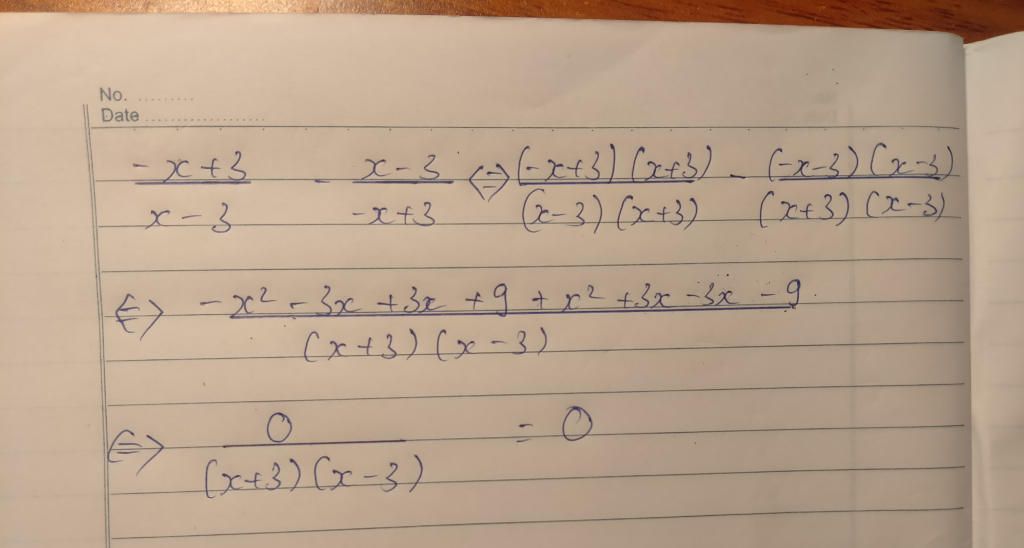 No. .........
Date ..................
\frac{-x+3}{x-3} - \frac{x-3}{-x+3} <=> \frac{(-x+3)(x+3)}{(x-3)(x+3)} - \frac{(-x-3)(x-3)}{(x+3)(x-3)}
<=> \frac{-x^2-3x+3x+9+x^2+3x-3x-9}{(x+3)(x-3)}
<=> \frac{0}{(x+3)(x-3)} = 0